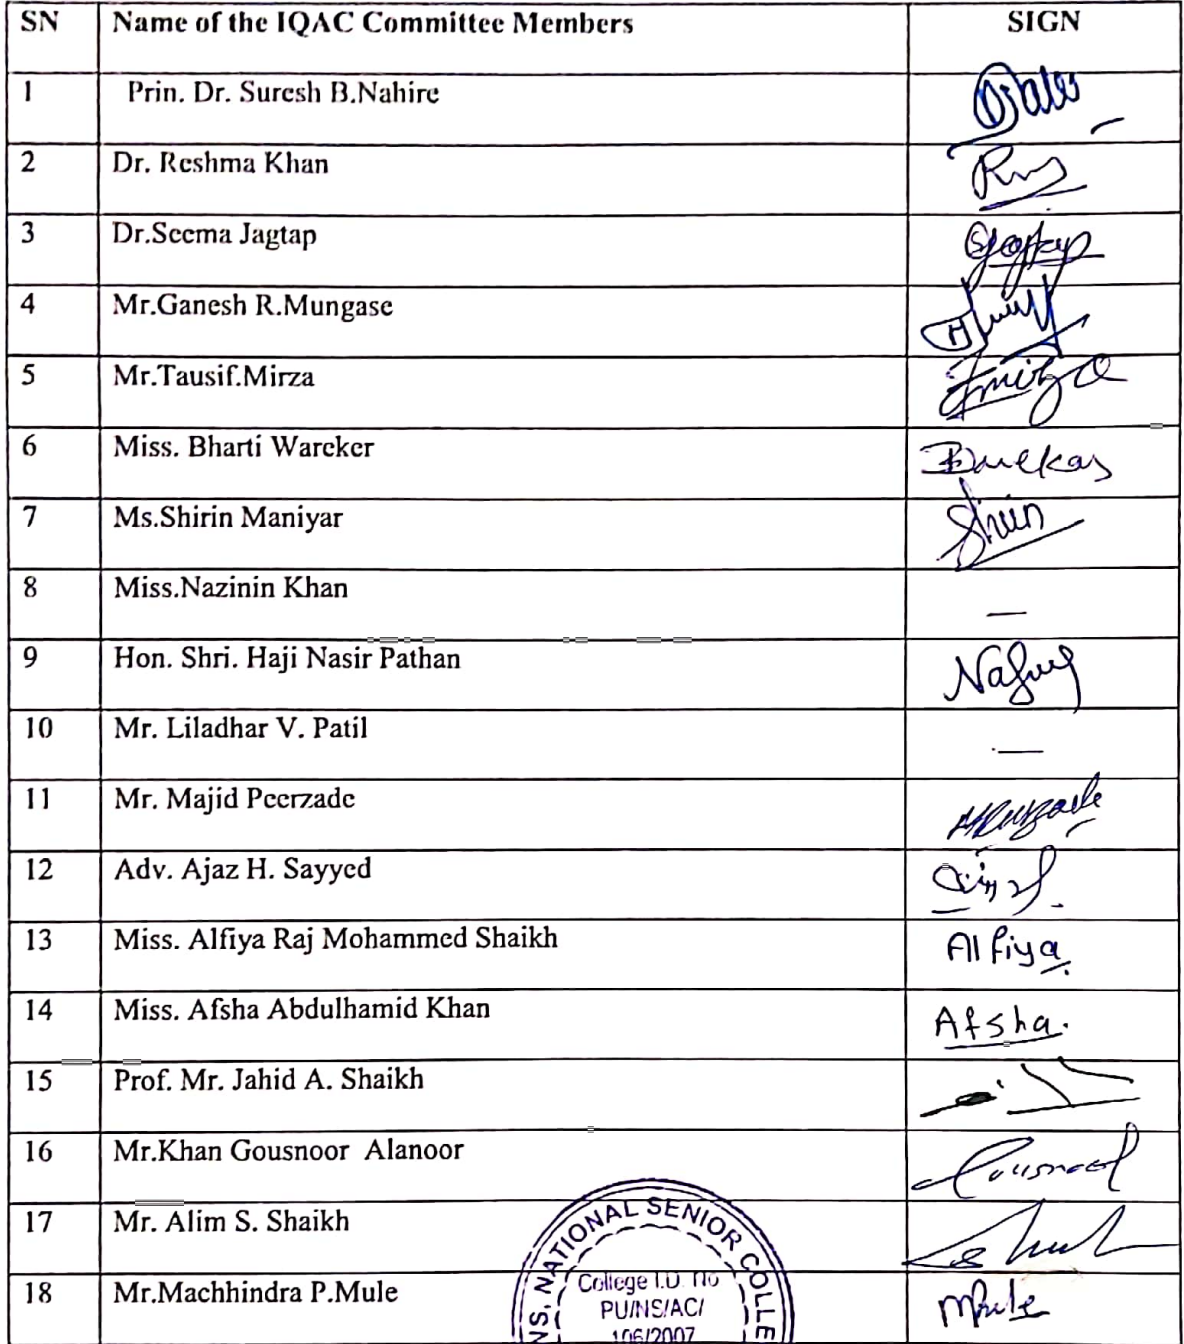 SN Name of the IQAC Committee Members SIGN
1 Prin. Dr. Suresh B.Nahire
2 Dr. Reshma Khan
3 Dr.Seema Jagtap
4 Mr.Ganesh R.Mungase
5 Mr.Tausif.Mirza
6 Miss. Bharti Wareker
7 Ms.Shirin Maniyar Shirin
8 Miss.Nazinin Khan —
9 Hon. Shri. Haji Nasir Pathan
10 Mr. Liladhar V. Patil —
11 Mr. Majid Peerzade
12 Adv. Ajaz H. Sayyed
13 Miss. Alfiya Raj Mohammed Shaikh Alfiya
14 Miss. Afsha Abdulhamid Khan Afsha.
15 Prof. Mr. Jahid A. Shaikh
16 Mr.Khan Gousnoor Alanoor
17 Mr. Alim S. Shaikh
18 Mr.Machhindra P.Mule
NATIONAL SENIOR
College I.D. no
PU/NS/AC/
106/2007